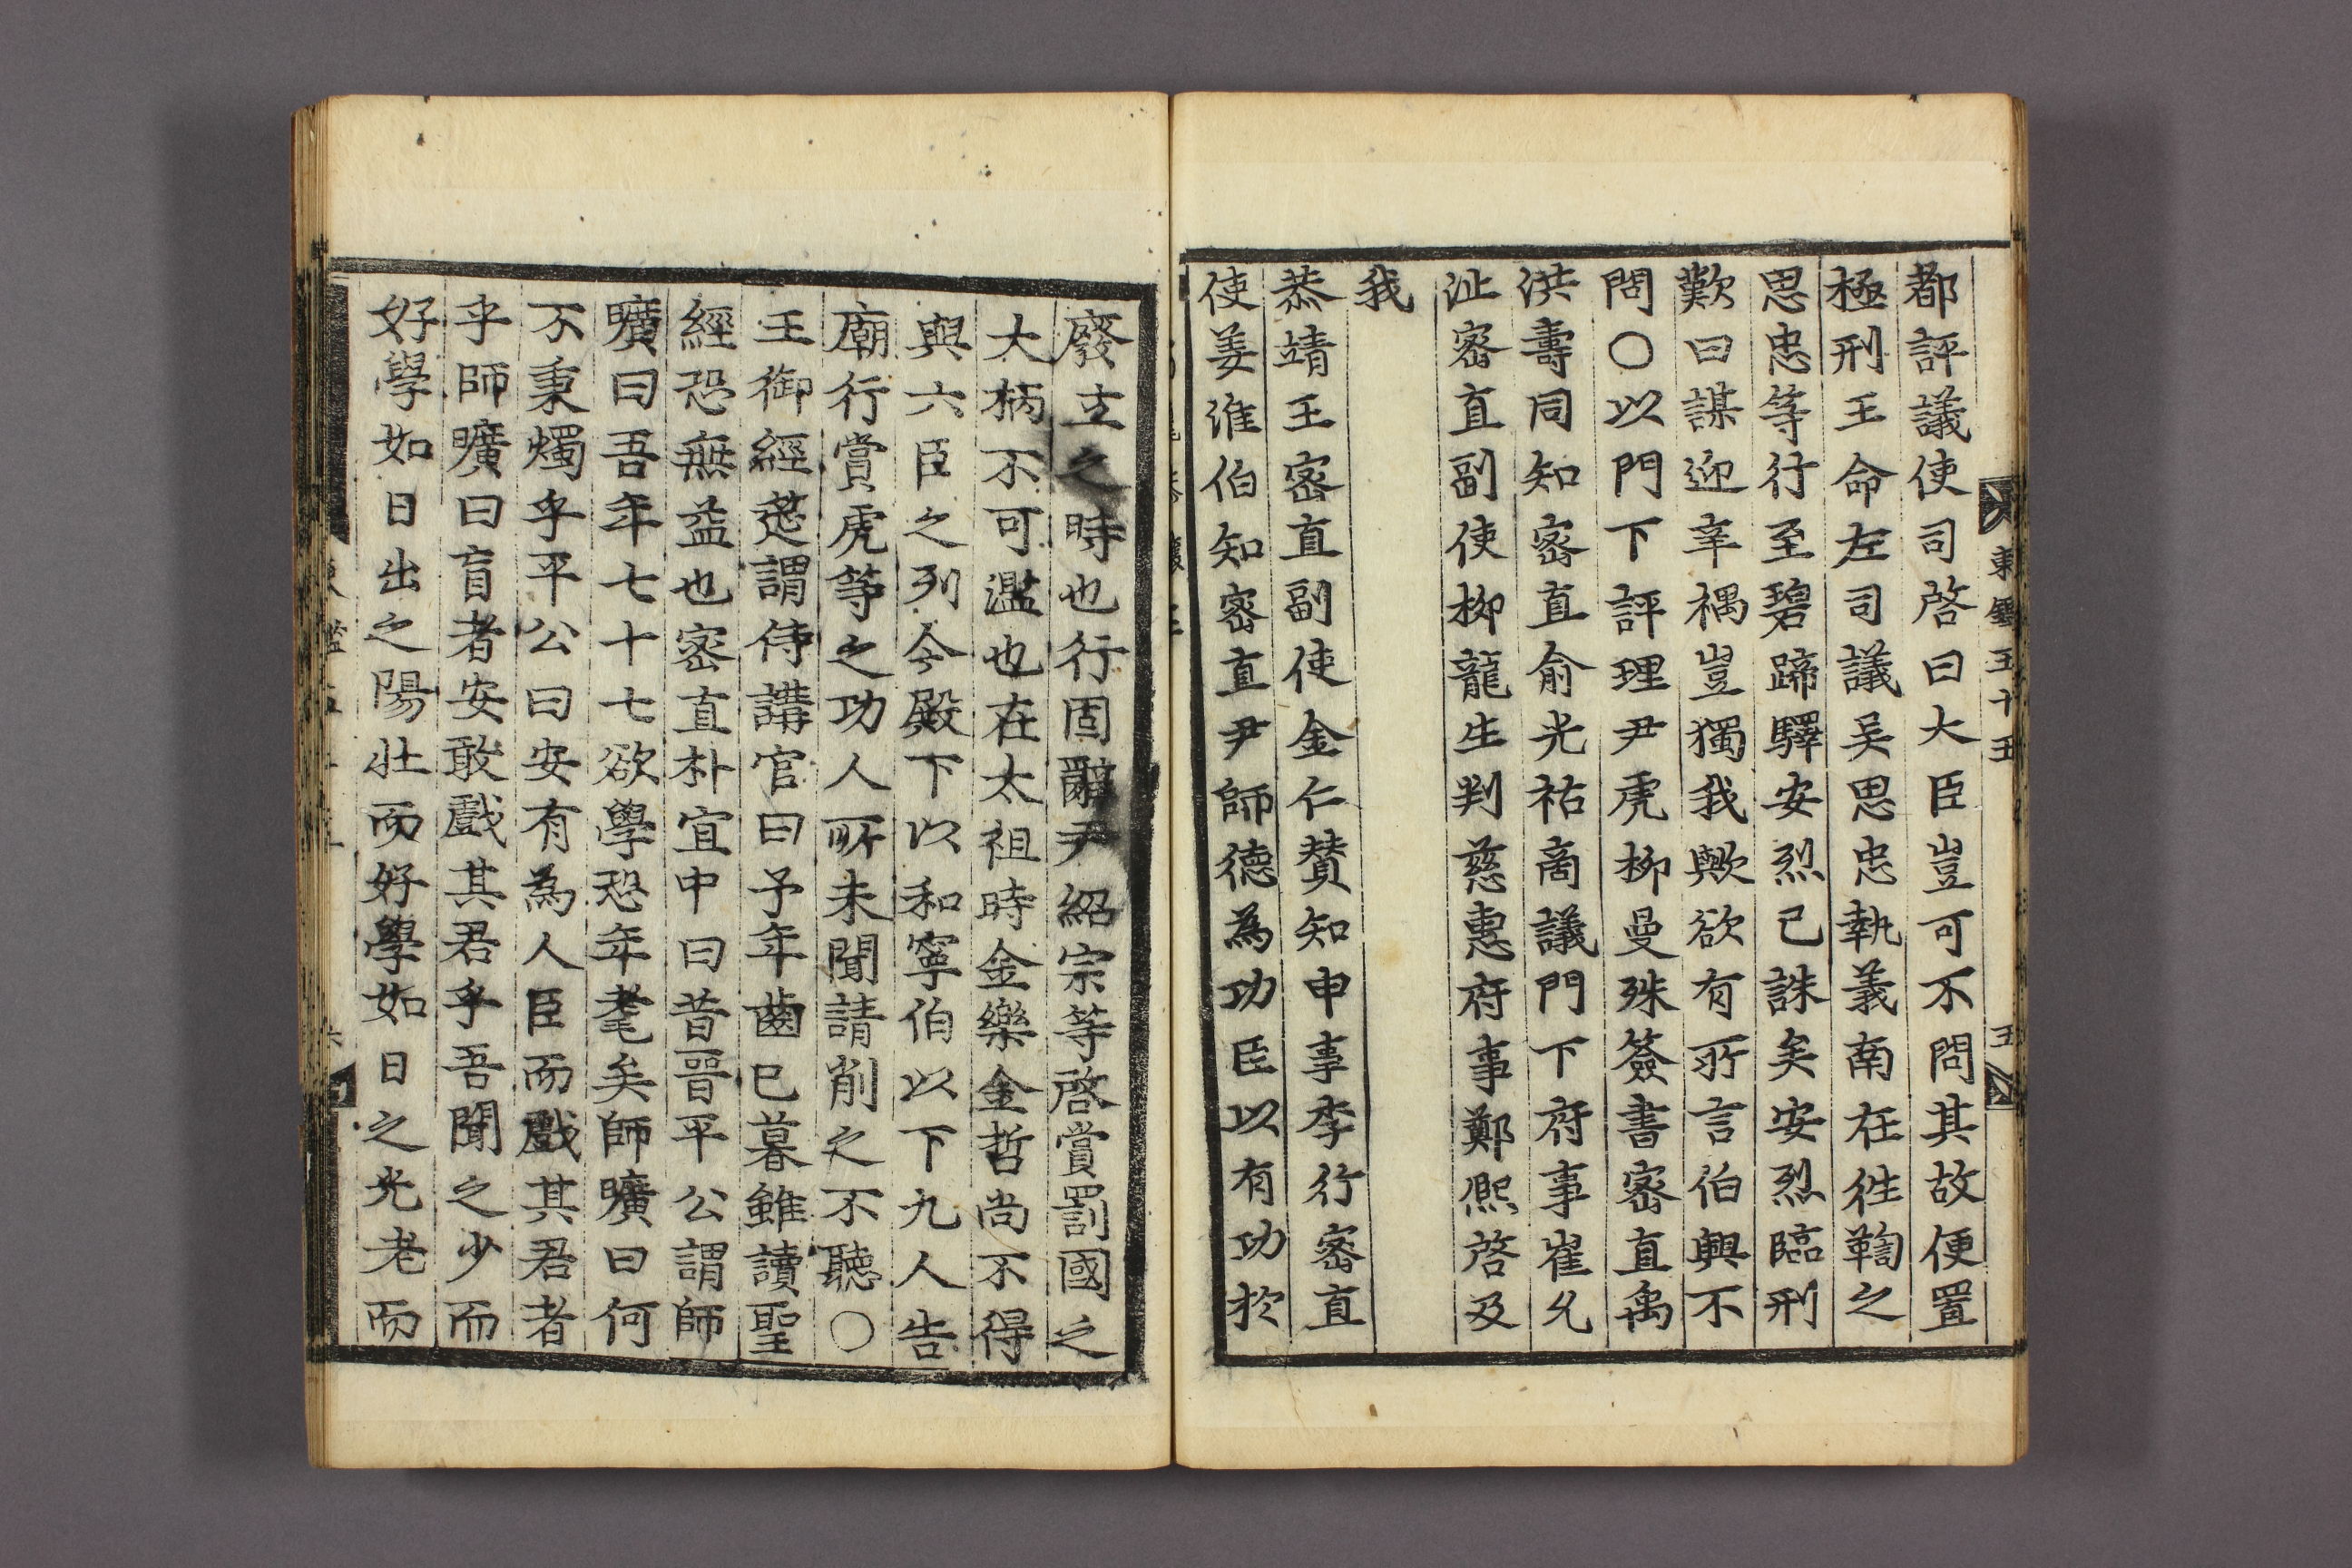 東鑑五十五
五
都評議使司啓曰大臣豈可不問其故便置
極刑王命左司議吴思忠執義南在徃鞫之
思忠等行至碧蹄驛安烈已誅矣安烈臨刑
歎曰謀迎辛禑豈獨我歟欲有所言伯興不
問○以門下評理尹虎柳曼殊簽書密直禹
洪壽同知密直俞光祐商議門下府事崔允
沚密直副使柳龍生判慈惠府事鄭熙啓及
我
恭靖王密直副使金仁賛知申事李行密直
使姜淮伯知密直尹師德為功臣以有功於
廢立之時也行固辭尹紹宗等啓賞罰國之
大柄不可濫也在太祖時金樂金哲尚不得
與六臣之列今殿下以和寧伯以下九人告
廟行賞虎等之功人所未聞請削之不聽○
王御經筵謂侍講官曰予年齒已暮雖讀聖
經恐無益也密直朴宜中曰昔晉平公謂師
曠曰吾年七十七欲學恐年耄矣師曠曰何
不秉燭乎平公曰安有為人臣而戲其君者
乎師曠曰盲者安敢戲其君乎吾聞之少而
好學如日出之陽壯而好學如日之光老而